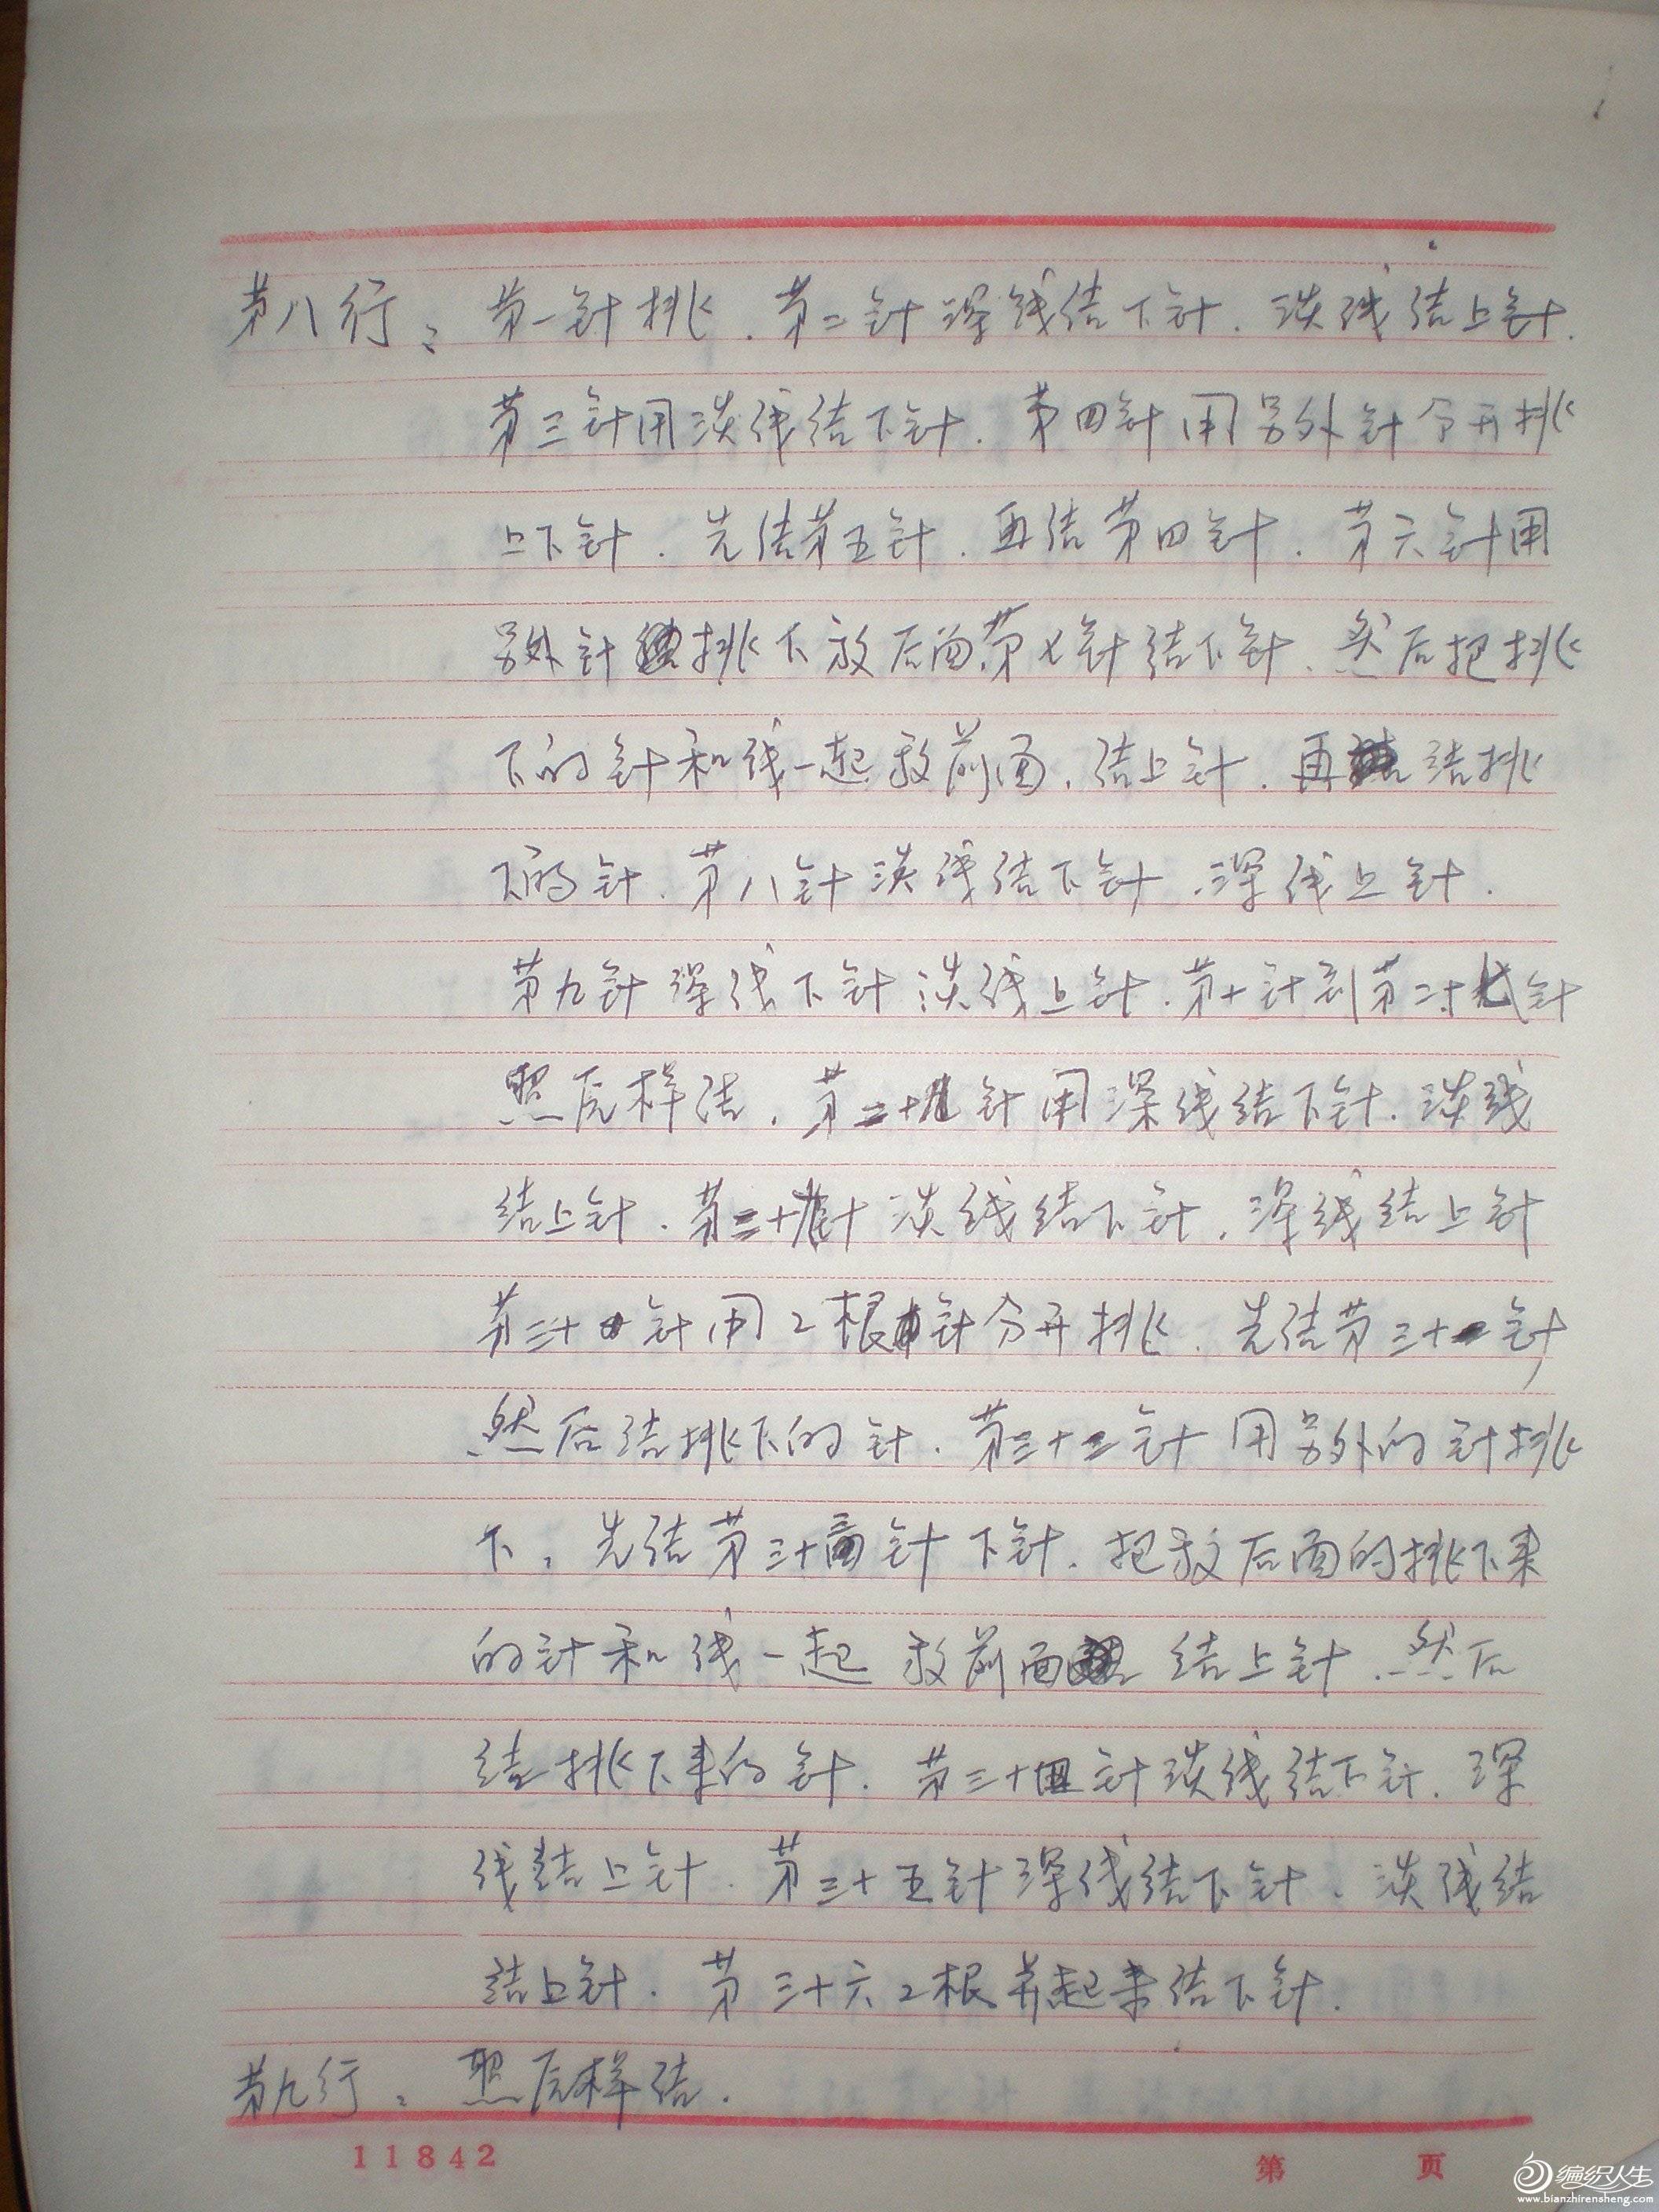 第八行：第一针挑．第二针深线结下针．淡线结上针．
第三针用淡线结下针．第四针用另外针分开挑
上下针．先结第五针．再结第四针．第六针用
另外针挑下放后面．第七针结下针．然后把挑
下的针和线一起放前面．结上针．再结挑
下的针．第八针淡线结下针．深线上针．
第九针深线下针淡线上针．第十针到第二十七针
照原样结．第二十八针用深线结下针．淡线
结上针．第二十九针淡线结下针．深线结上针
第三十针用2根针分开挑．先结第三十一针，
然后结挑下的针．第三十二针用另外的针挑
下．先结第三十三针下针．把放后面的挑下来
的针和线一起放前面结上针．然后
结挑下来的针．第三十四针淡线结下针．深
线结上针．第三十五针深线结下针．淡线结
结上针．第三十六2根并起来结下针．
第九行：照原样结．
11842 第 页
编织人生
www.bianzhirensheng.com